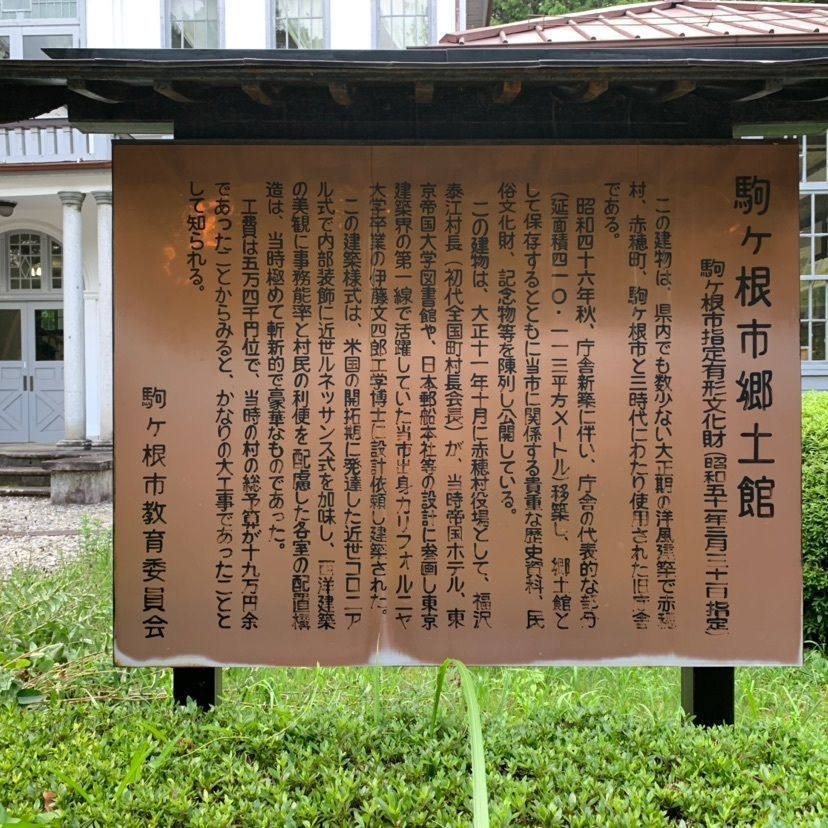 駒ヶ根市郷土館
駒ヶ根市指定有形文化財(昭和五十一年三月二十日指定)
この建物は、県内でも数少ない大正期の洋風建築で赤穂
村、赤穂町、駒ヶ根市と三時代にわたり使用された旧庁舎
である。
昭和四十六年秋、庁舎新築に伴い、庁舎の代表的な部分
(延面積四一〇・一一三平方メートル)移築し、郷土館と
して保存するとともに当市に関係する貴重な歴史資料、民
俗文化財、記念物等を陳列し公開している。
この建物は、大正十一年十月に赤穂村役場として、福沢
泰江村長(初代全国町村長会長)が、当時帝国ホテル、東
京帝国大学図書館や、日本郵船本社等の設計に参画し東京
建築界の第一線で活躍していた当市出身カリフォルニヤ
大学卒業の伊藤文四郎工学博士に設計依頼し建築された。
この建築様式は、米国の開拓期に発達した近世コロニア
ル式で内部装飾に近世ルネッサンス式を加味し、西洋建築
の美観に事務能率と村民の利便を配慮した各室の配置構
造は、当時極めて斬新的で豪華なものであった。
工費は五万四千円位で、当時の村の総予算が十九万円余
であったことからみると、かなりの大工事であったことと
して知られる。
駒ヶ根市教育委員会